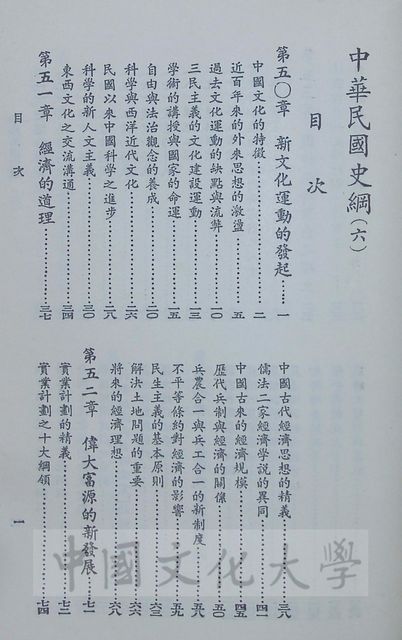 中華民國史綱(六)
目次
第五〇章 新文化運動的發起……一
中國文化的特徵……二
近百年來的外來思想的激盪……五
過去文化運動的缺點與流弊……一〇
三民主義的文化建設運動……一三
學術的講授與國家的命運……一五
自由與法治觀念的養成……二〇
科學與西洋近代文化……二六
民國以來中國科學之進步……二八
科學的新人文主義……三〇
東西文化之交流溝通……三四
第五一章 經濟的道理……三七
中國古代經濟思想的精義……三八
儒法二家經濟學說的異同……四一
中國古來的經濟規模……四五
歷代兵制與經濟的關係……五〇
兵農合一與兵工合一的新制度……五六
不平等條約對經濟的影響……五九
民生主義的基本原則……六三
解決土地問題的重要……六六
將來的經濟理想……六八
第五二章 偉大富源的新發展……七一
實業計劃的精義……七二
實業計劃之十大綱領……七四
目次
一
中國文化大學